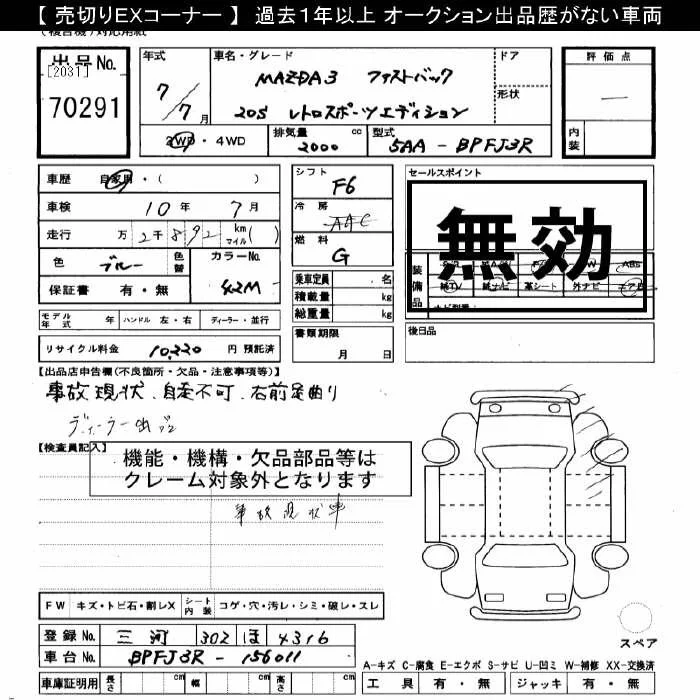 【 売切りEXコーナー 】 過去1年以上 オークション出品歴がない車両
出品No.
[2031]
70291
年式
7/7月
車名・グレード
MAZDA3 ファストバック
20S レトロスポーツエディション
ドア
形状
評価点
—
内装
2WD・4WD
排気量 2000 cc
型式 5AA - BPFJ3R
車歴 自家用・( )
車検 10年 7月
走行 万2千892 km マイル ( )
色 ブルー 色替
カラーNo. 42M
保証書 有・無
シフト F6
冷房 AAC
燃料 G
乗車定員 名
積載量 kg
総重量 kg
セールスポイント
無効
装備品
革シート 外ナビ
後日品
モデル年式 年 ハンドル 左・右 ディーラー・並行
書類期限 月 日
リサイクル料金 10,220 円 預託済
【出品店申告欄(不良箇所・欠品・注意事項等)】
事故現状、自走不可、右前足曲り
ディーラー出品
【検査員記入】
機能・機構・欠品部品等は
クレーム対象外となります
事故現状車
FW キズ・トビ石・割レX シート内装 コゲ・穴・汚レ・シミ・破レ・スレ
登録No. 三河 302 ほ 4316
車台No. BPFJ3R - 156011
車庫証明用 長さ cm 幅 cm 高さ cm
スペア
A-キズ C-腐食 E-エクボ S-サビ U-凹ミ W-補修 XX-交換済
工具 有・無 ジャッキ 有・無